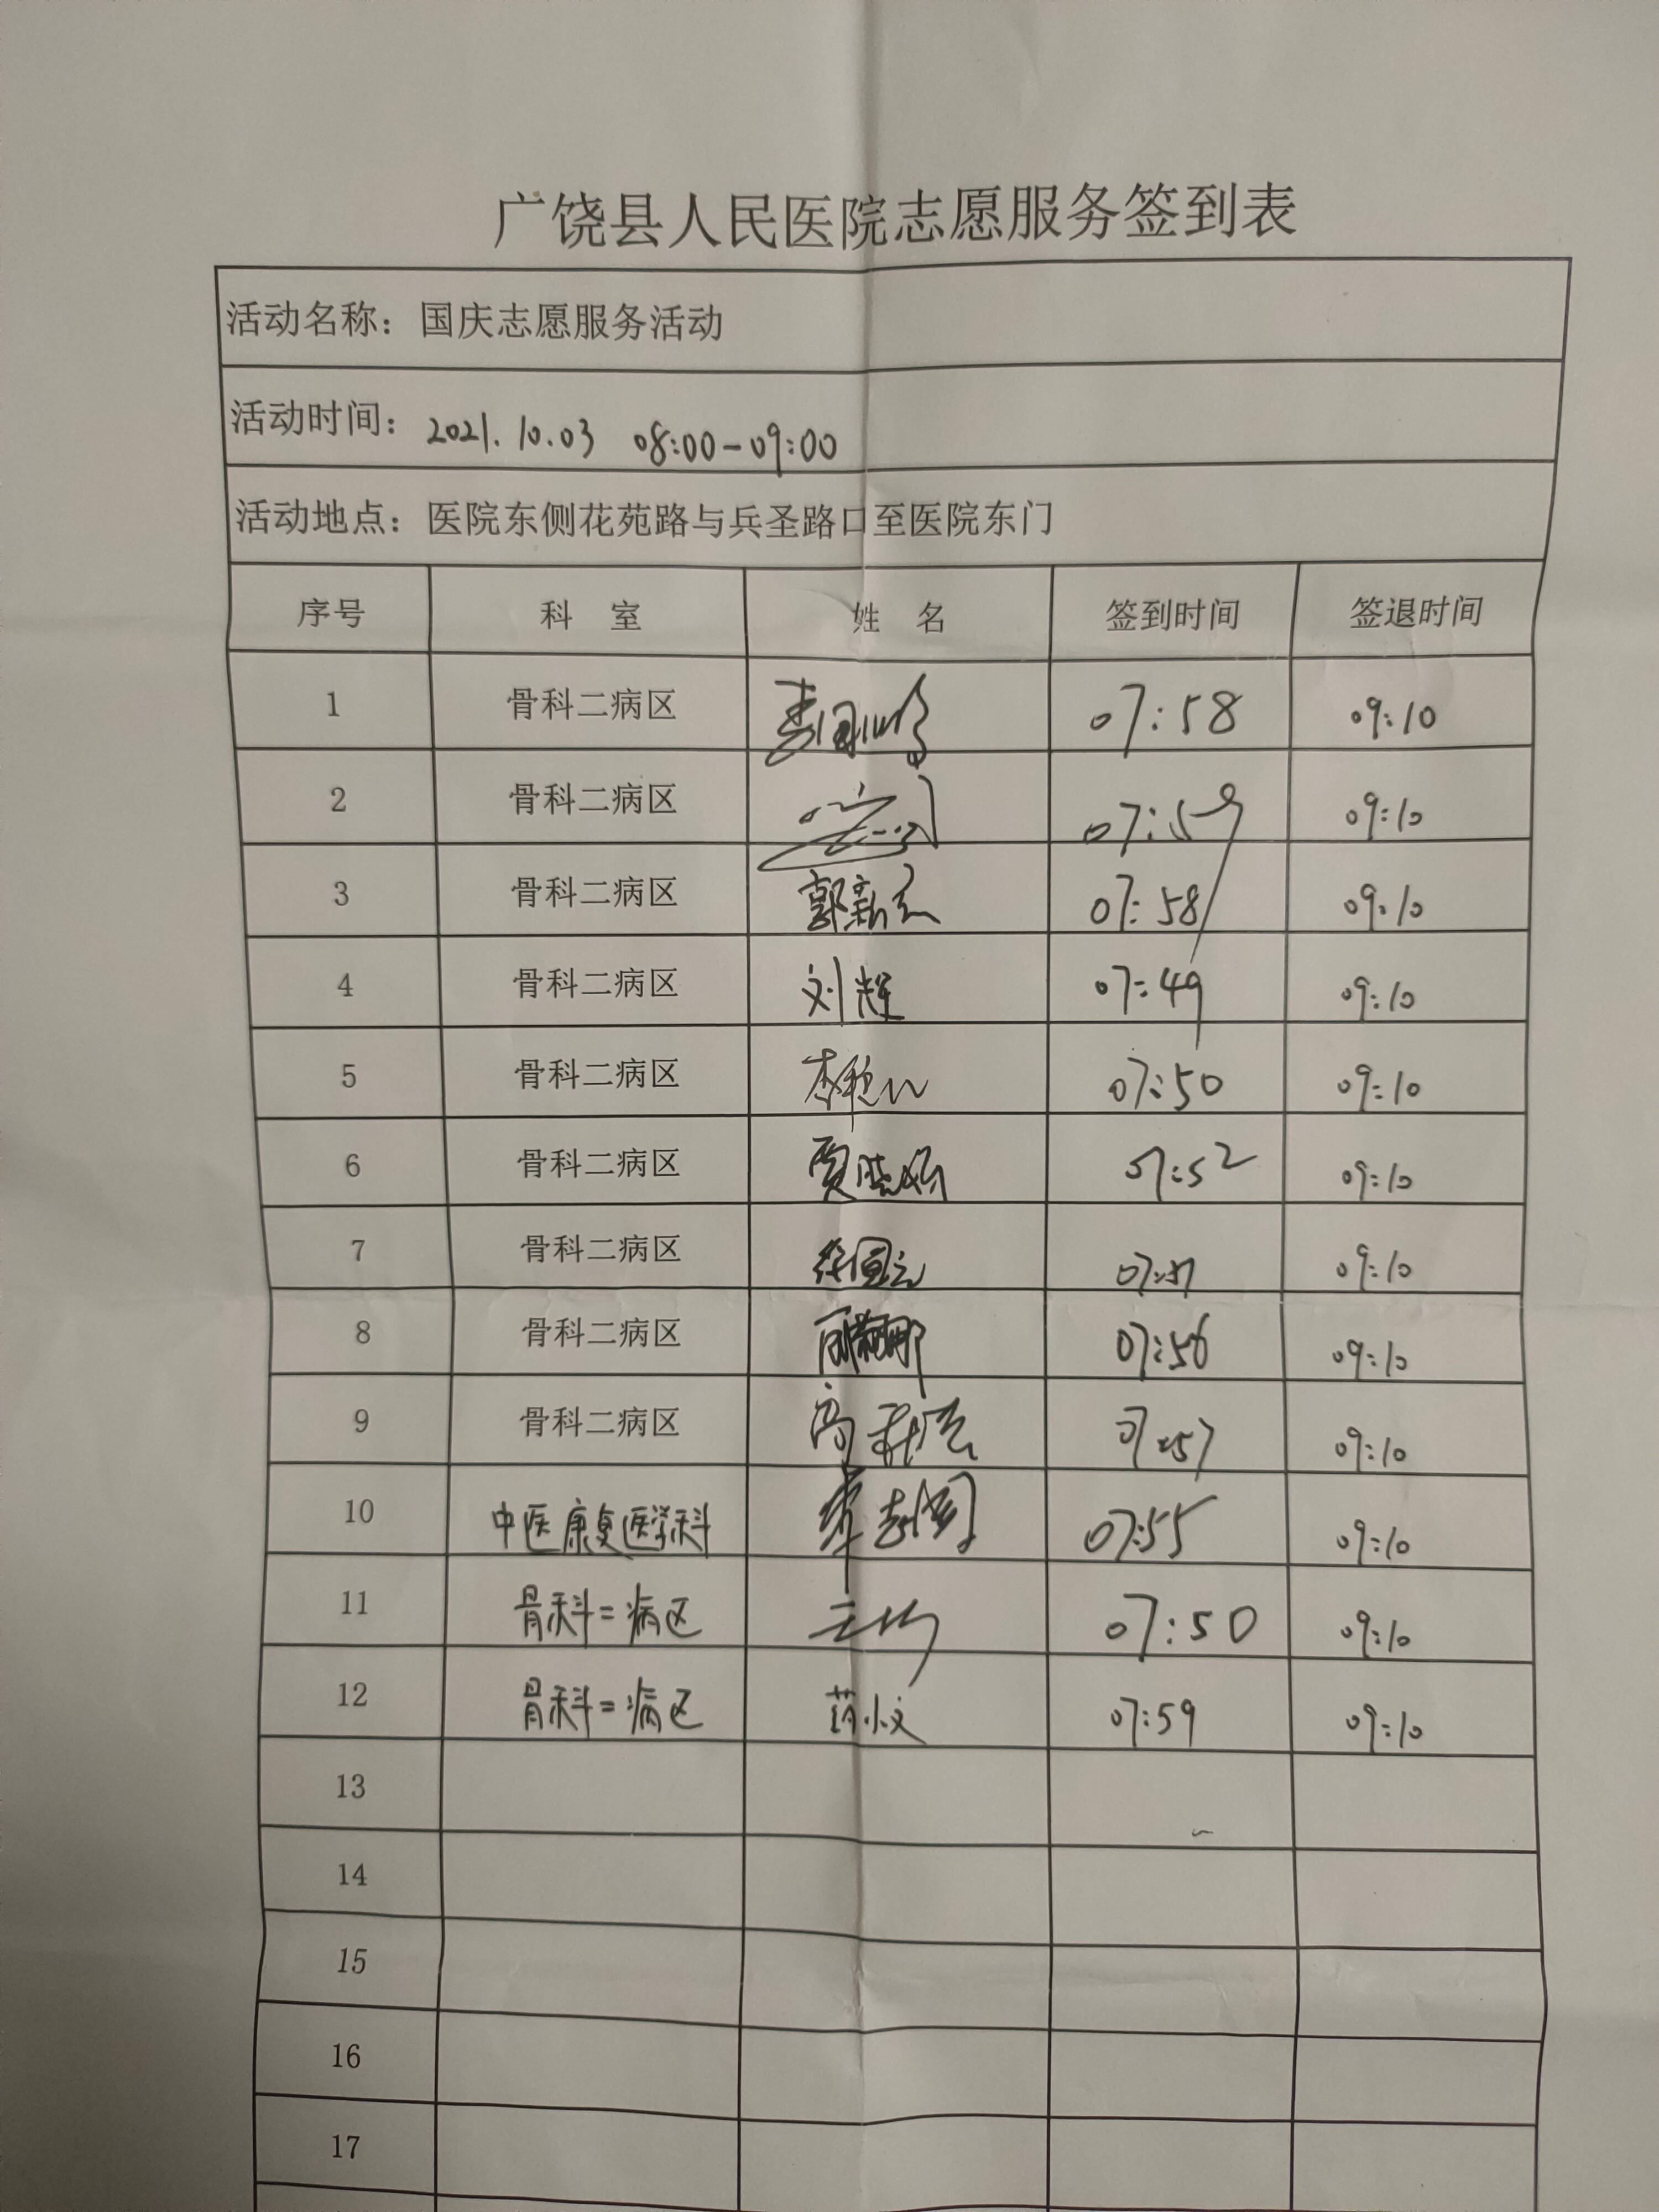 广饶县人民医院志愿服务签到表
活动名称：国庆志愿服务活动
活动时间：2021.10.03 08:00-09:00
活动地点：医院东侧花苑路与兵圣路口至医院东门
序号 科 室 姓 名 签到时间 签退时间
1 骨科二病区 07:58 09:10
2 骨科二病区 07:59 09:10
3 骨科二病区 07:58 09:10
4 骨科二病区 刘辉 07:49 09:10
5 骨科二病区 07:50 09:10
6 骨科二病区 07:52 09:10
7 骨科二病区 09:10
8 骨科二病区 07:56 09:10
9 骨科二病区 07:57 09:10
10 中医康复医学科 07:55 09:10
11 骨科二病区 07:50 09:10
12 骨科二病区 07:59 09:10
13
14
15
16
17